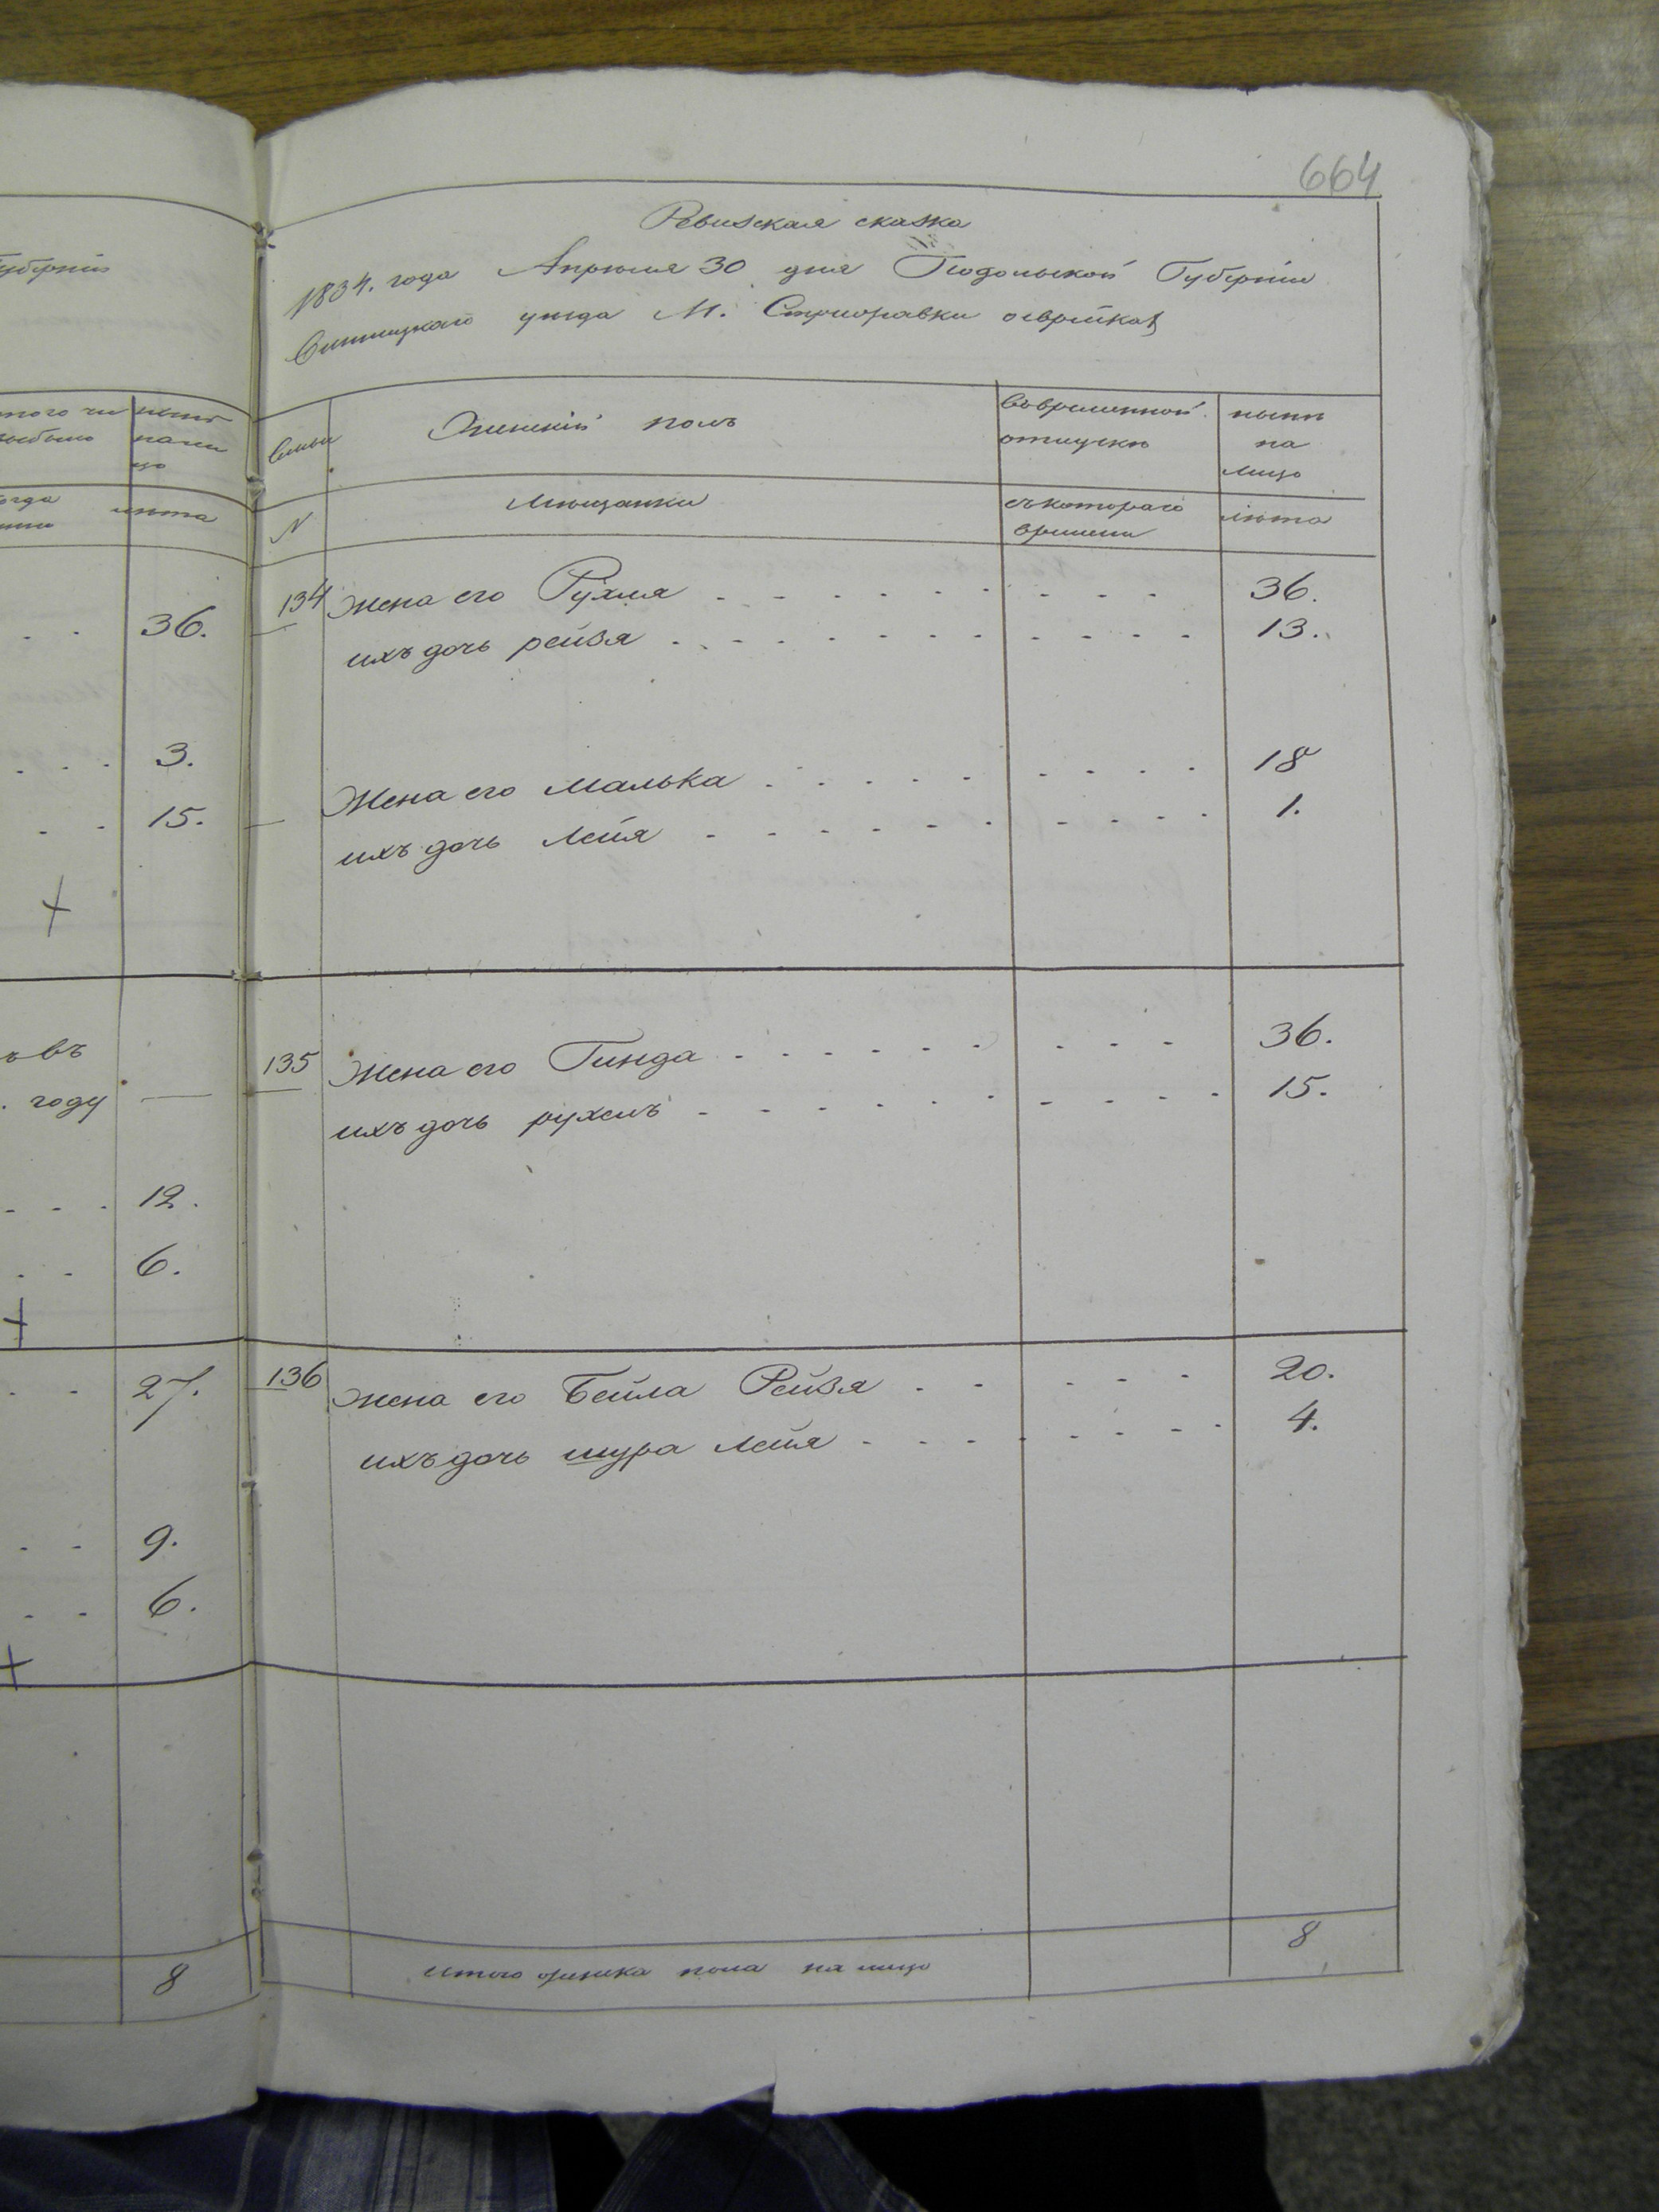 Губерніи
нынѣ
лѣта
36.
3.
15.
въ
году
12.
6.
27.
9.
6.
8
664
Ревизская сказка
1834. года Апрѣля 30 дня Подольской Губерніи
Винницкаго уѣзда М. Стрижавки о еврейкахъ
Семьи
Женскій полъ
вовременной
отлучкѣ
нынѣ
на
лицо
N
Мѣщанки
съкотораго
времени
лѣта
134 Жена его Рухля 36.
ихъ дочь рейзя 13.
Жена его Малька 18
ихъ дочь Лейя 1.
135 Жена его Гинда 36.
ихъ дочь рухель 15.
136 Жена его Бейла Рейзя 20.
ихъ дочь шура Лейя 4.
итого женска пола на лицо 8